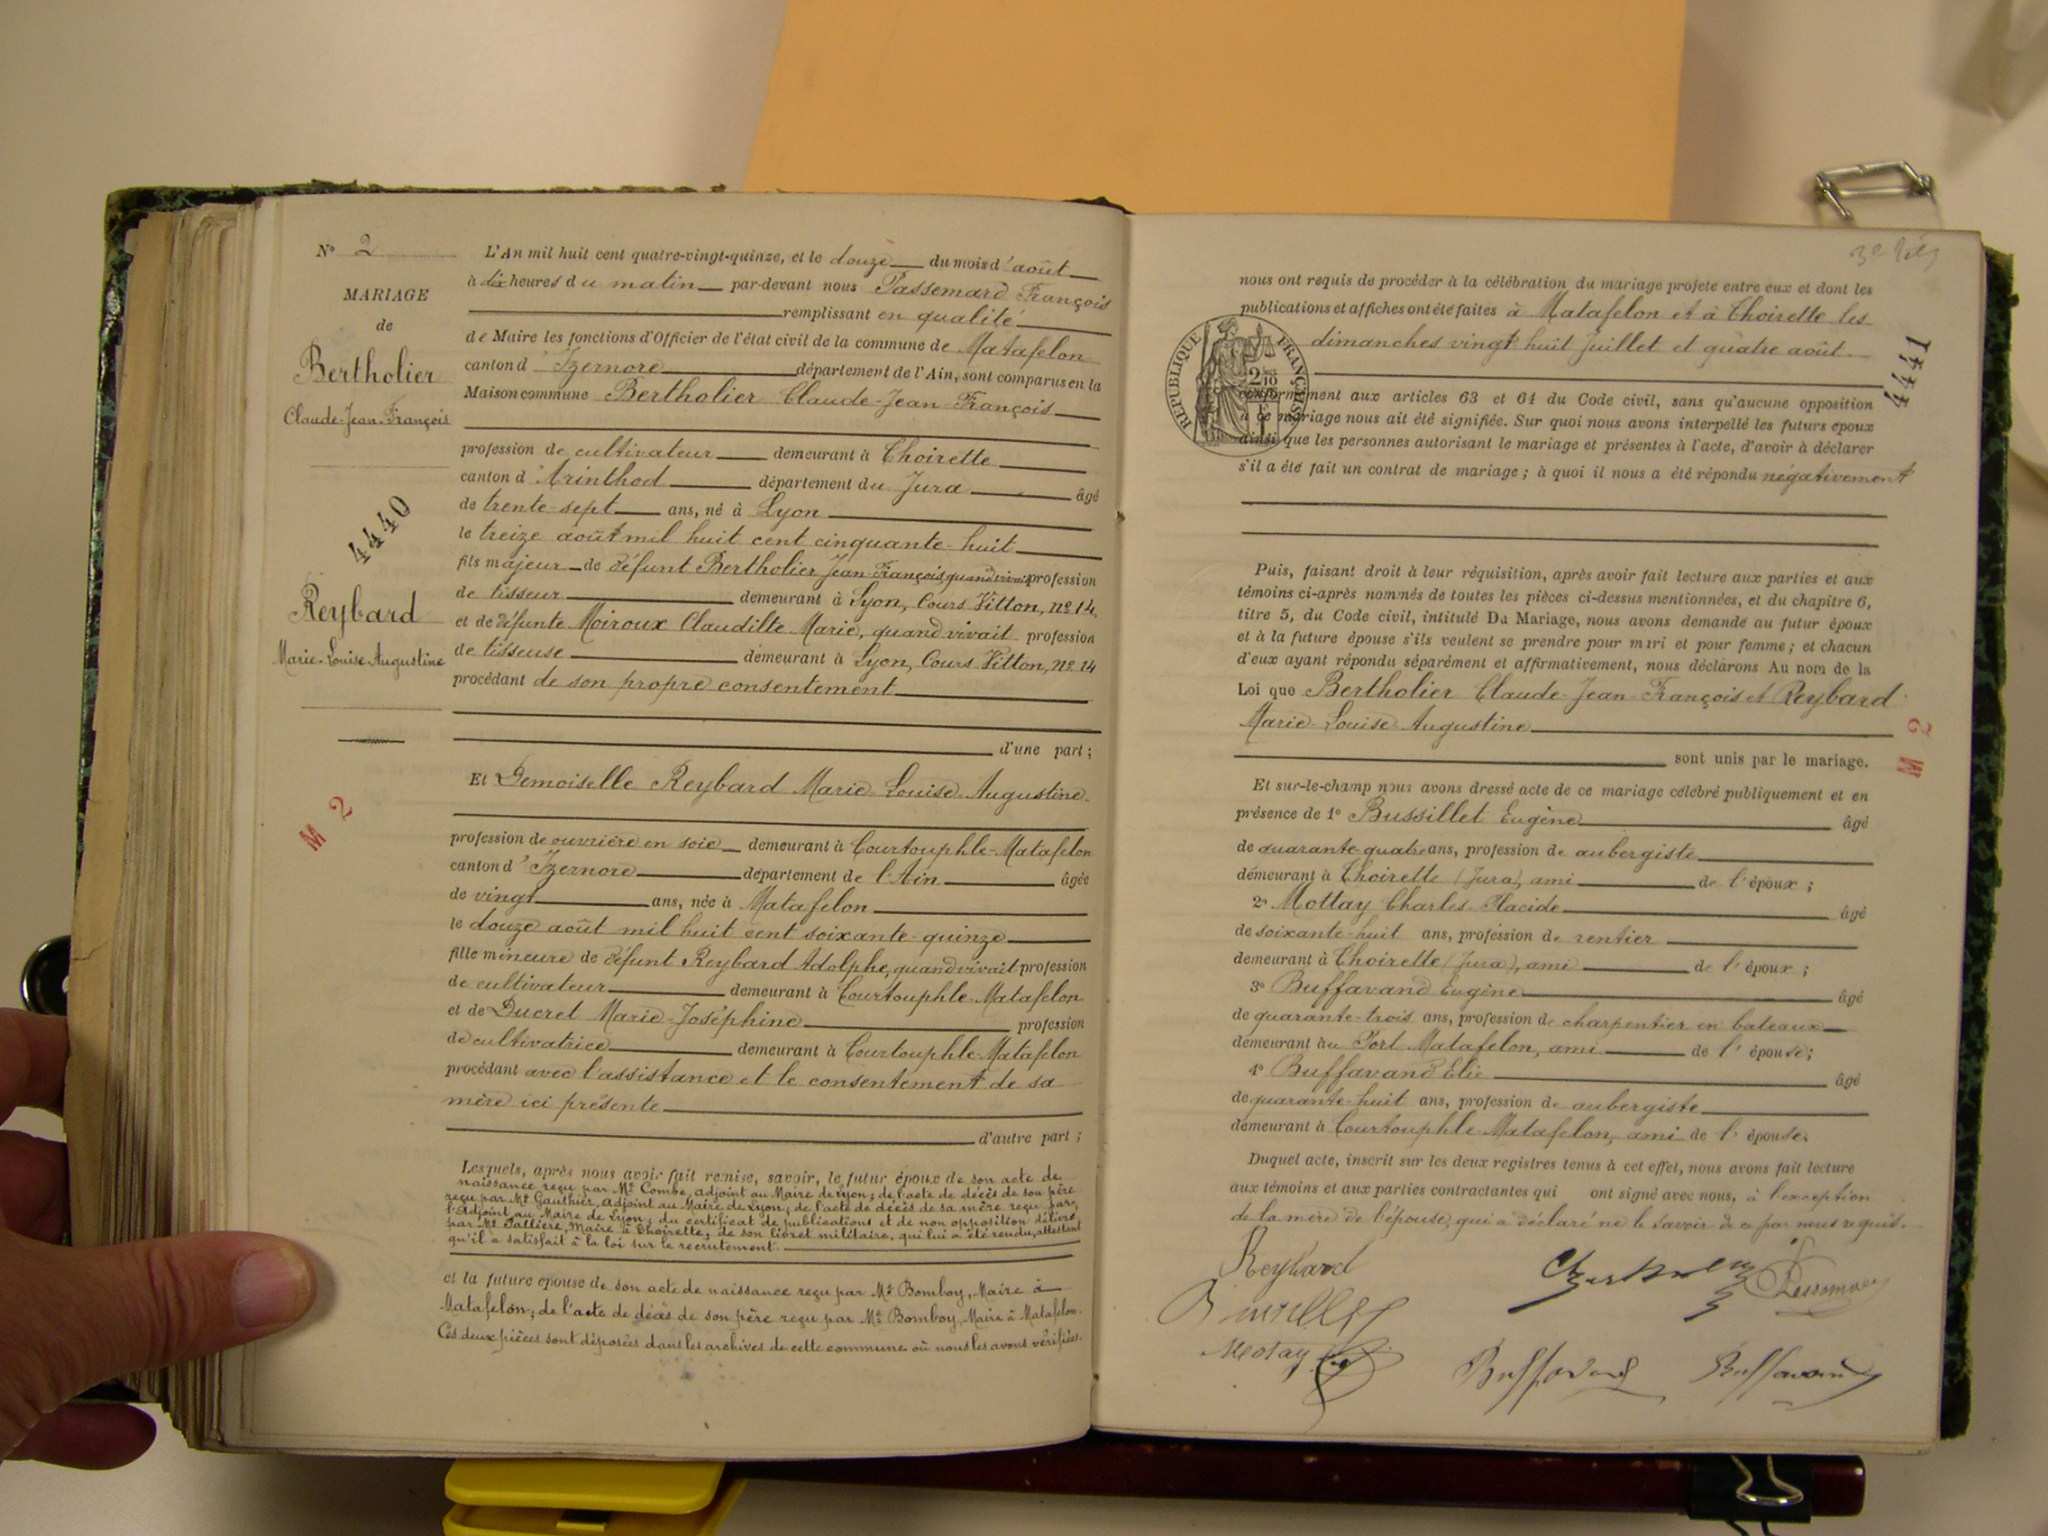 N° 2
MARIAGE
de
Bertholier
Claude-Jean-François
4440
Reybard
Marie-Louise-Augustine
M 2
L'An mil huit cent quatre-vingt-quinze, et le douze du mois d'août
à dix heures du matin par-devant nous Passemard François
remplissant en qualité
de Maire les fonctions d'Officier de l'état civil de la commune de Matafelon
canton d'Izernore département de l'Ain, sont comparus en la
Maison commune Bertholier Claude-Jean-François
profession de cultivateur demeurant à Thoirette
canton d'Arinthod département du Jura âgé
de trente-sept ans, né à Lyon
le treize août mil huit cent cinquante-huit
fils majeur de défunt Bertholier Jean-François quand vivait profession
de tisseur demeurant à Lyon, Cours Vitton, n° 14,
et de défunte Moiroux Claudine Marie, quand vivait profession
de tisseuse demeurant à Lyon, Cours Vitton, n° 14
procédant de son propre consentement
d'une part;
Et Demoiselle Reybard Marie-Louise-Augustine
profession de ouvrière en soie demeurant à Courtouphle-Matafelon
canton d'Izernore département de l'Ain âgée
de vingt ans, née à Matafelon
le douze août mil huit cent soixante-quinze
fille mineure de défunt Reybard Adolphe, quand vivait profession
de cultivateur demeurant à Courtouphle-Matafelon
et de Ducret Marie-Joséphine profession
de cultivatrice demeurant à Courtouphle-Matafelon
procédant avec l'assistance et le consentement de sa
mère ici présente
d'autre part;
Lesquels, après nous avoir fait remise, savoir, le futur époux de son acte de
naissance reçu par Mr Combe, adjoint au Maire de Lyon; de l'acte de décès de son père
reçu par Mr Gauthier, adjoint au Maire de Lyon; de l'acte de décès de sa mère reçu par
l'Adjoint au Maire de Lyon; du certificat de publications et de non opposition délivré
par Mr Maire à Thoirette; de son livret militaire, qui lui a été rendu, attestant
qu'il a satisfait à la loi sur le recrutement.
et la future épouse de son acte de naissance reçu par Mr Bomboy, Maire à
Matafelon; de l'acte de décès de son père reçu par Mr Bomboy, Maire à Matafelon.
Ces deux pièces sont déposées dans les archives de cette commune où nous les avons vérifiées.
nous ont requis de procéder à la célébration du mariage projeté entre eux et dont les
publications et affiches ont été faites à Matafelon et à Thoirette les
dimanches vingt huit Juillet et quatre août.
REPUBLIQUE FRANÇAISE
4441
conformément aux articles 63 et 64 du Code civil, sans qu'aucune opposition
à ce mariage nous ait été signifiée. Sur quoi nous avons interpellé les futurs époux
ainsi que les personnes autorisant le mariage et présentes à l'acte, d'avoir à déclarer
s'il a été fait un contrat de mariage; à quoi il nous a été répondu négativement
Puis, faisant droit à leur réquisition, après avoir fait lecture aux parties et aux
témoins ci-après nommés de toutes les pièces ci-dessus mentionnées, et du chapitre 6,
titre 5, du Code civil, intitulé Du Mariage, nous avons demandé au futur époux
et à la future épouse s'ils veulent se prendre pour mari et pour femme; et chacun
d'eux ayant répondu séparément et affirmativement, nous déclarons Au nom de la
Loi que Bertholier Claude-Jean-François et Reybard
Marie-Louise-Augustine
sont unis par le mariage.
M 2
Et sur-le-champ nous avons dressé acte de ce mariage célébré publiquement et en
présence de 1° Bussillet Eugène âgé
de quarante-quatre ans, profession de aubergiste
demeurant à Thoirette (Jura), ami de l'époux;
2° Mottay Charles-Placide âgé
de soixante-huit ans, profession de rentier
demeurant à Thoirette (Jura), ami de l'époux;
3° Buffavand Eugène âgé
de quarante-trois ans, profession de charpentier en bateaux
demeurant au Port Matafelon, ami de l'épouse;
4° Buffavand Élie âgé
de quarante-huit ans, profession de aubergiste
demeurant à Courtouphle-Matafelon, ami de l'épouse.
Duquel acte, inscrit sur les deux registres tenus à cet effet, nous avons fait lecture
aux témoins et aux parties contractantes qui ont signé avec nous, à l'exception
de la mère de l'épouse, qui a déclaré ne le savoir de ce par nous requis.
Reybard
Mottay Buffavand Buffavand